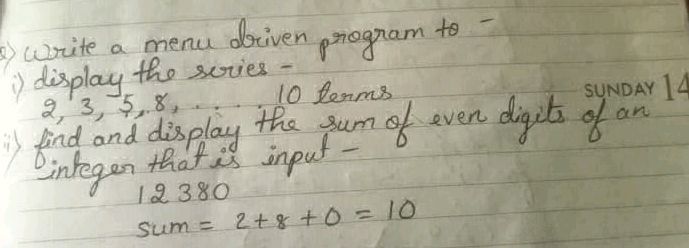 Write a menu driven program to -
i) display the series -
2, 3, 5, 8, . . . . 10 terms
SUNDAY 14
ii) find and display the sum of even digits of an
integer that is input -
12380
sum = 2+8+0 = 10